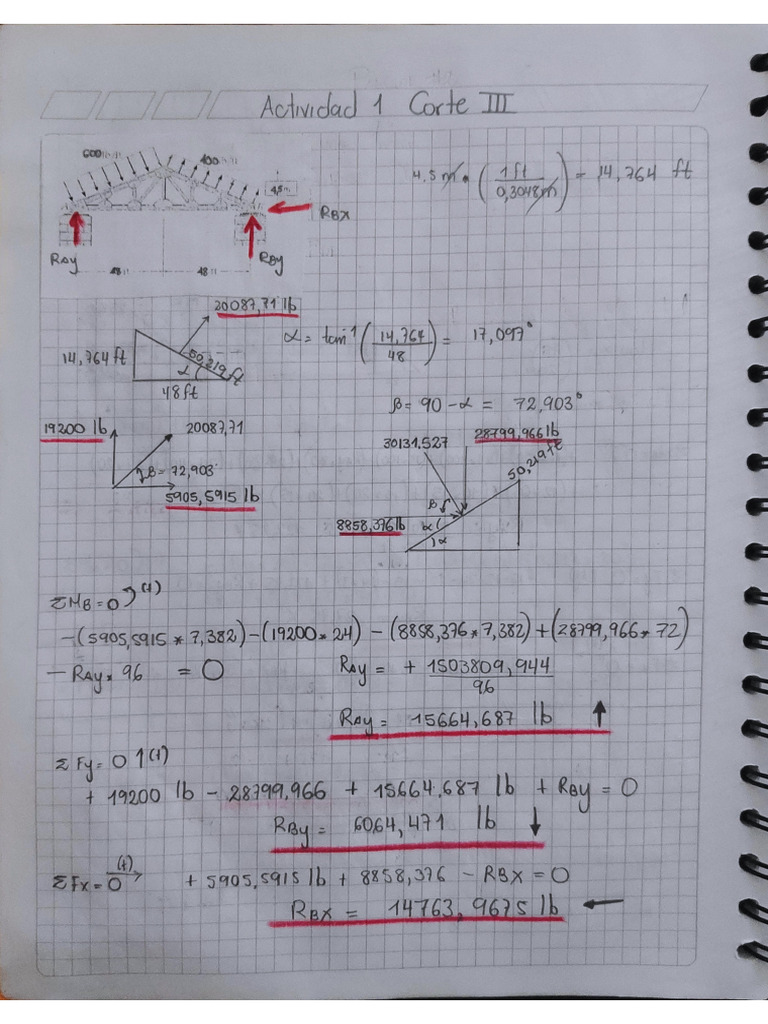 Actividad 1 Corte III
600
400
4,5m
RBX
RAy
RBy
48 ft
48 ft
4.5 m • (1 ft / 0,3048m) = 14,764 ft
20087,71 lb
14,764 ft
50,219 ft
α
48 ft
α = tan⁻¹ (14,764 / 48) = 17,097°
β = 90 - α = 72,903°
19200 lb
20087,71
β = 72,903°
5905,5915 lb
30131,527
28799,966 lb
50,219 ft
β
8858,376 lb
α
α
ΣMB = 0 (+)
-(5905,5915 * 7,382) -(19200 * 24) - (8858,376 * 7,382) + (28799,966 * 72)
- RAy * 96 = 0
RAy = + 1503809,944 / 96
RAy = 15664,687 lb ↑
ΣFy = 0 ↑ (+)
+ 19200 lb - 28799,966 + 15664,687 lb + RBy = 0
RBy = 6064,471 lb ↓
ΣFx = 0 (+) →
+ 5905,5915 lb + 8858,376 - RBX = 0
RBX = 14763,9675 lb ←